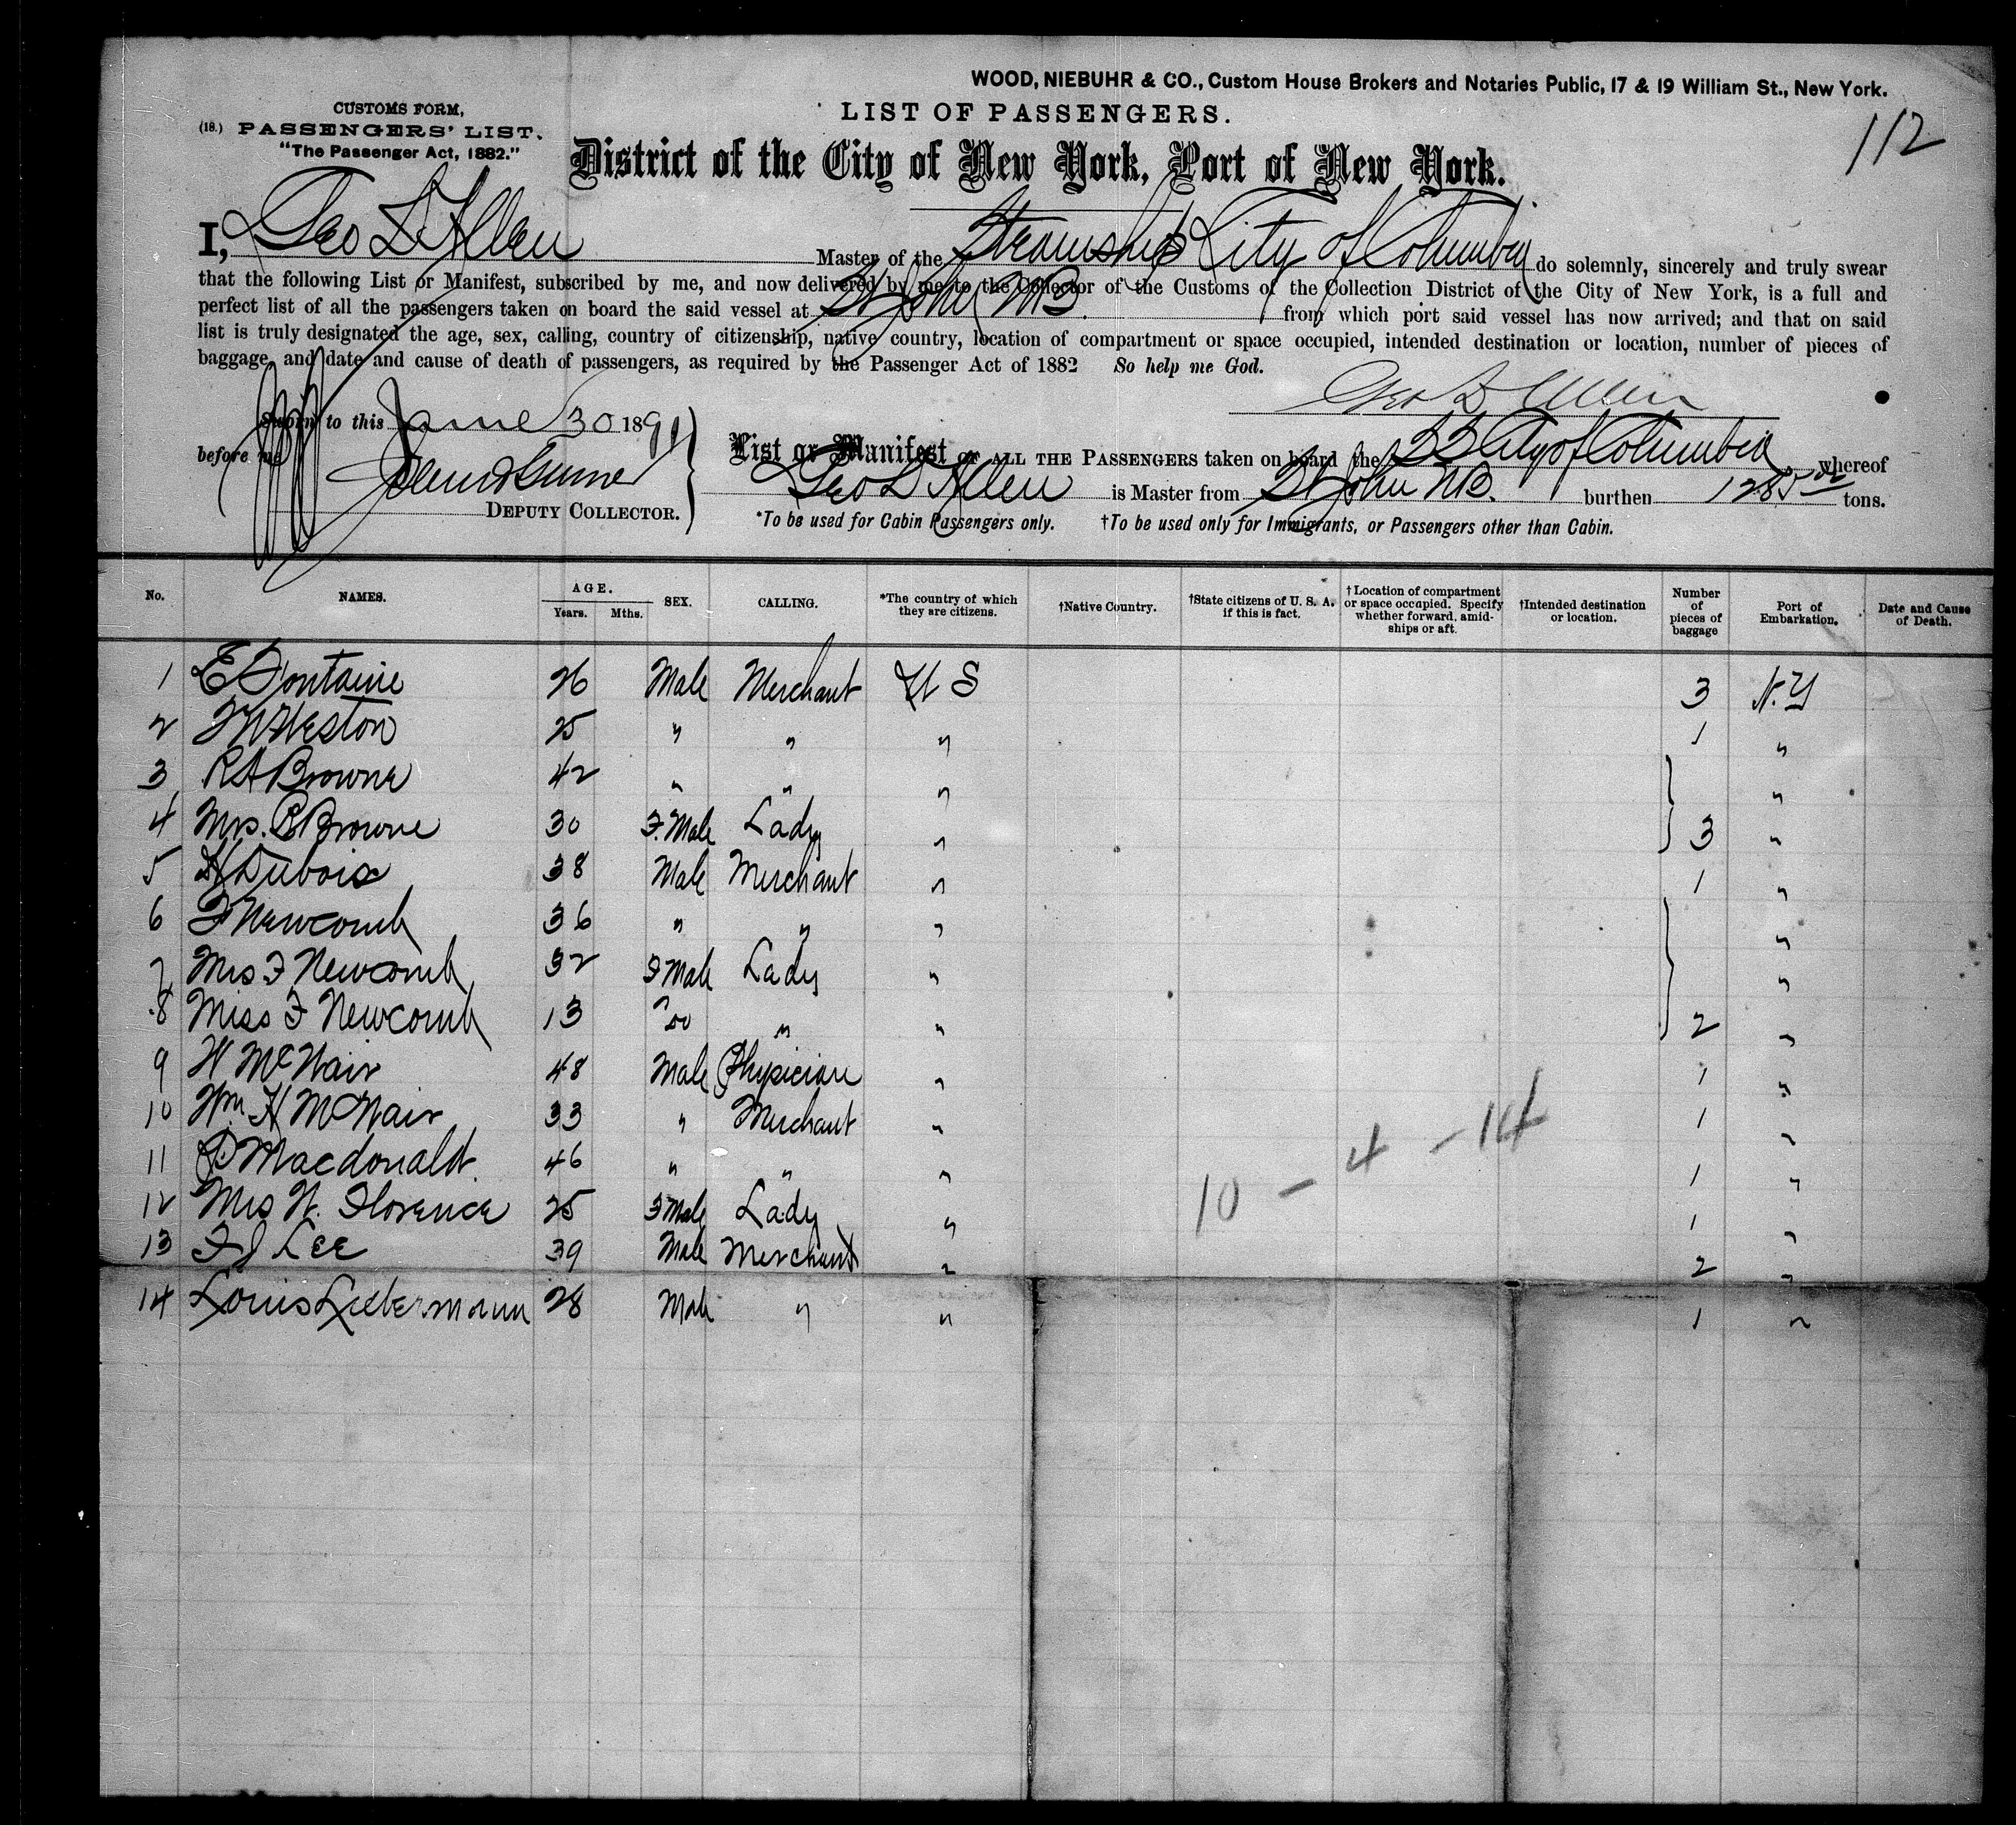 WOOD, NIEBUHR & CO., Custom House Brokers and Notaries Public, 17 & 19 William St., New York.
CUSTOMS FORM,
(18.) PASSENGERS' LIST.
"The Passenger Act, 1882."
LIST OF PASSENGERS.
112
District of the City of New York, Port of New York.
I, Geo D Allen Master of the Steamship City of Columbia do solemnly, sincerely and truly swear
that the following List or Manifest, subscribed by me, and now delivered by me to the Collector of the Customs of the Collection District of the City of New York, is a full and
perfect list of all the passengers taken on board the said vessel at St John NB. from which port said vessel has now arrived; and that on said
list is truly designated the age, sex, calling, country of citizenship, native country, location of compartment or space occupied, intended destination or location, number of pieces of
baggage, and date and cause of death of passengers, as required by the Passenger Act of 1882 So help me God.
Geo D Allen
Sworn to this June 30 1891
before me
DEPUTY COLLECTOR.
List or Manifest OF ALL THE PASSENGERS taken on board the SS City of Columbia whereof
Geo D Allen is Master from St John NB. burthen 1285 tons.
*To be used for Cabin Passengers only. †To be used only for Immigrants, or Passengers other than Cabin.
No. NAMES. AGE. Years. Mths. SEX. CALLING. *The country of which they are citizens. †Native Country. †State citizens of U. S. A. if this is fact. †Location of compartment or space occupied. Specify whether forward, amidships or aft. †Intended destination or location. Number of pieces of baggage Port of Embarkation. Date and Cause of Death.
1 E Fontaine 26 Male Merchant U S 3 N.Y
2 Weston 25 " " " 1 "
3 RA Browne 42 " " " "
4 Mrs. Browne 30 F.Male Lady " 3 "
5 H Dubois 38 Male Merchant " 1 "
6 F Newcomb 36 " " " "
7 Mrs F Newcomb 32 F Male Lady " "
8 Miss F Newcomb 13 " Do " " 2 "
9 W McNair 48 Male Physician " 1 "
10 Wm H McNair 33 " Merchant " 1 "
11 P Macdonald 46 " " " 1 "
12 Mrs W. Florence 25 F Male Lady " 1 "
13 F J Lee 39 Male Merchant " 2 "
14 Louis Liebermann 28 Male " " 1 "
10 - 4 - 14